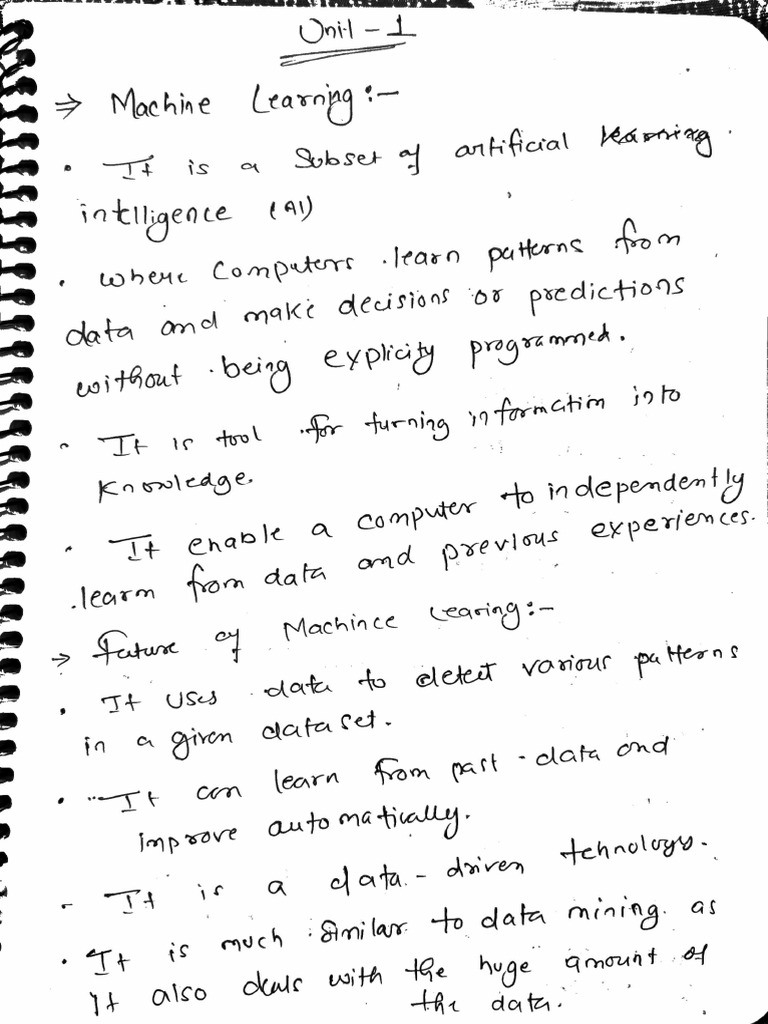 Unit - 1
⇒ Machine Learning :-
• It is a Subset of artificial learning
intelligence (AI)
• where Computers learn patterns from
data and make decisions or predictions
without being explicity programmed.
• It is tool for turning information into
Knowledge.
• It enable a computer to independently
learn from data and previous experiences.
→ Future of Machince Learing :-
• It uses data to detect various patterns
in a given dataset.
• It can learn from past data and
improve automatically.
- It is a data - driven tehnology.
• It is much similar to data mining as
it also deals with the huge amount of
the data.